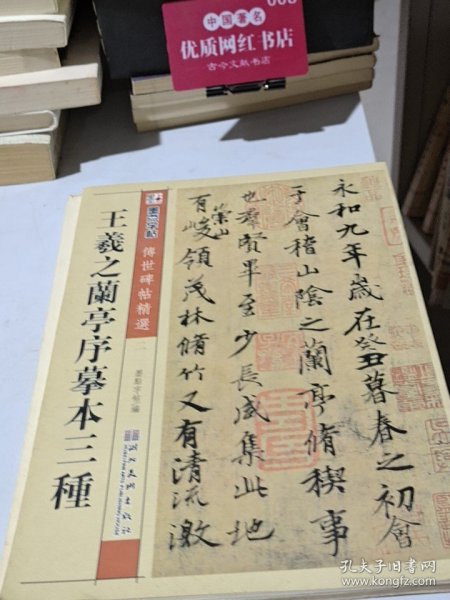 中国著名
优质网红书店
古今文献书店
墨点字帖
傳世碑帖精選
王羲之蘭亭序摹本三種
墨點字帖 編
永和九年歲在癸丑暮春之初會
于會稽山陰之蘭亭脩稧事
也羣賢畢至少長咸集此地
有崇山峻領茂林脩竹又有清流激
孔夫子旧书网
www.kongfz.com